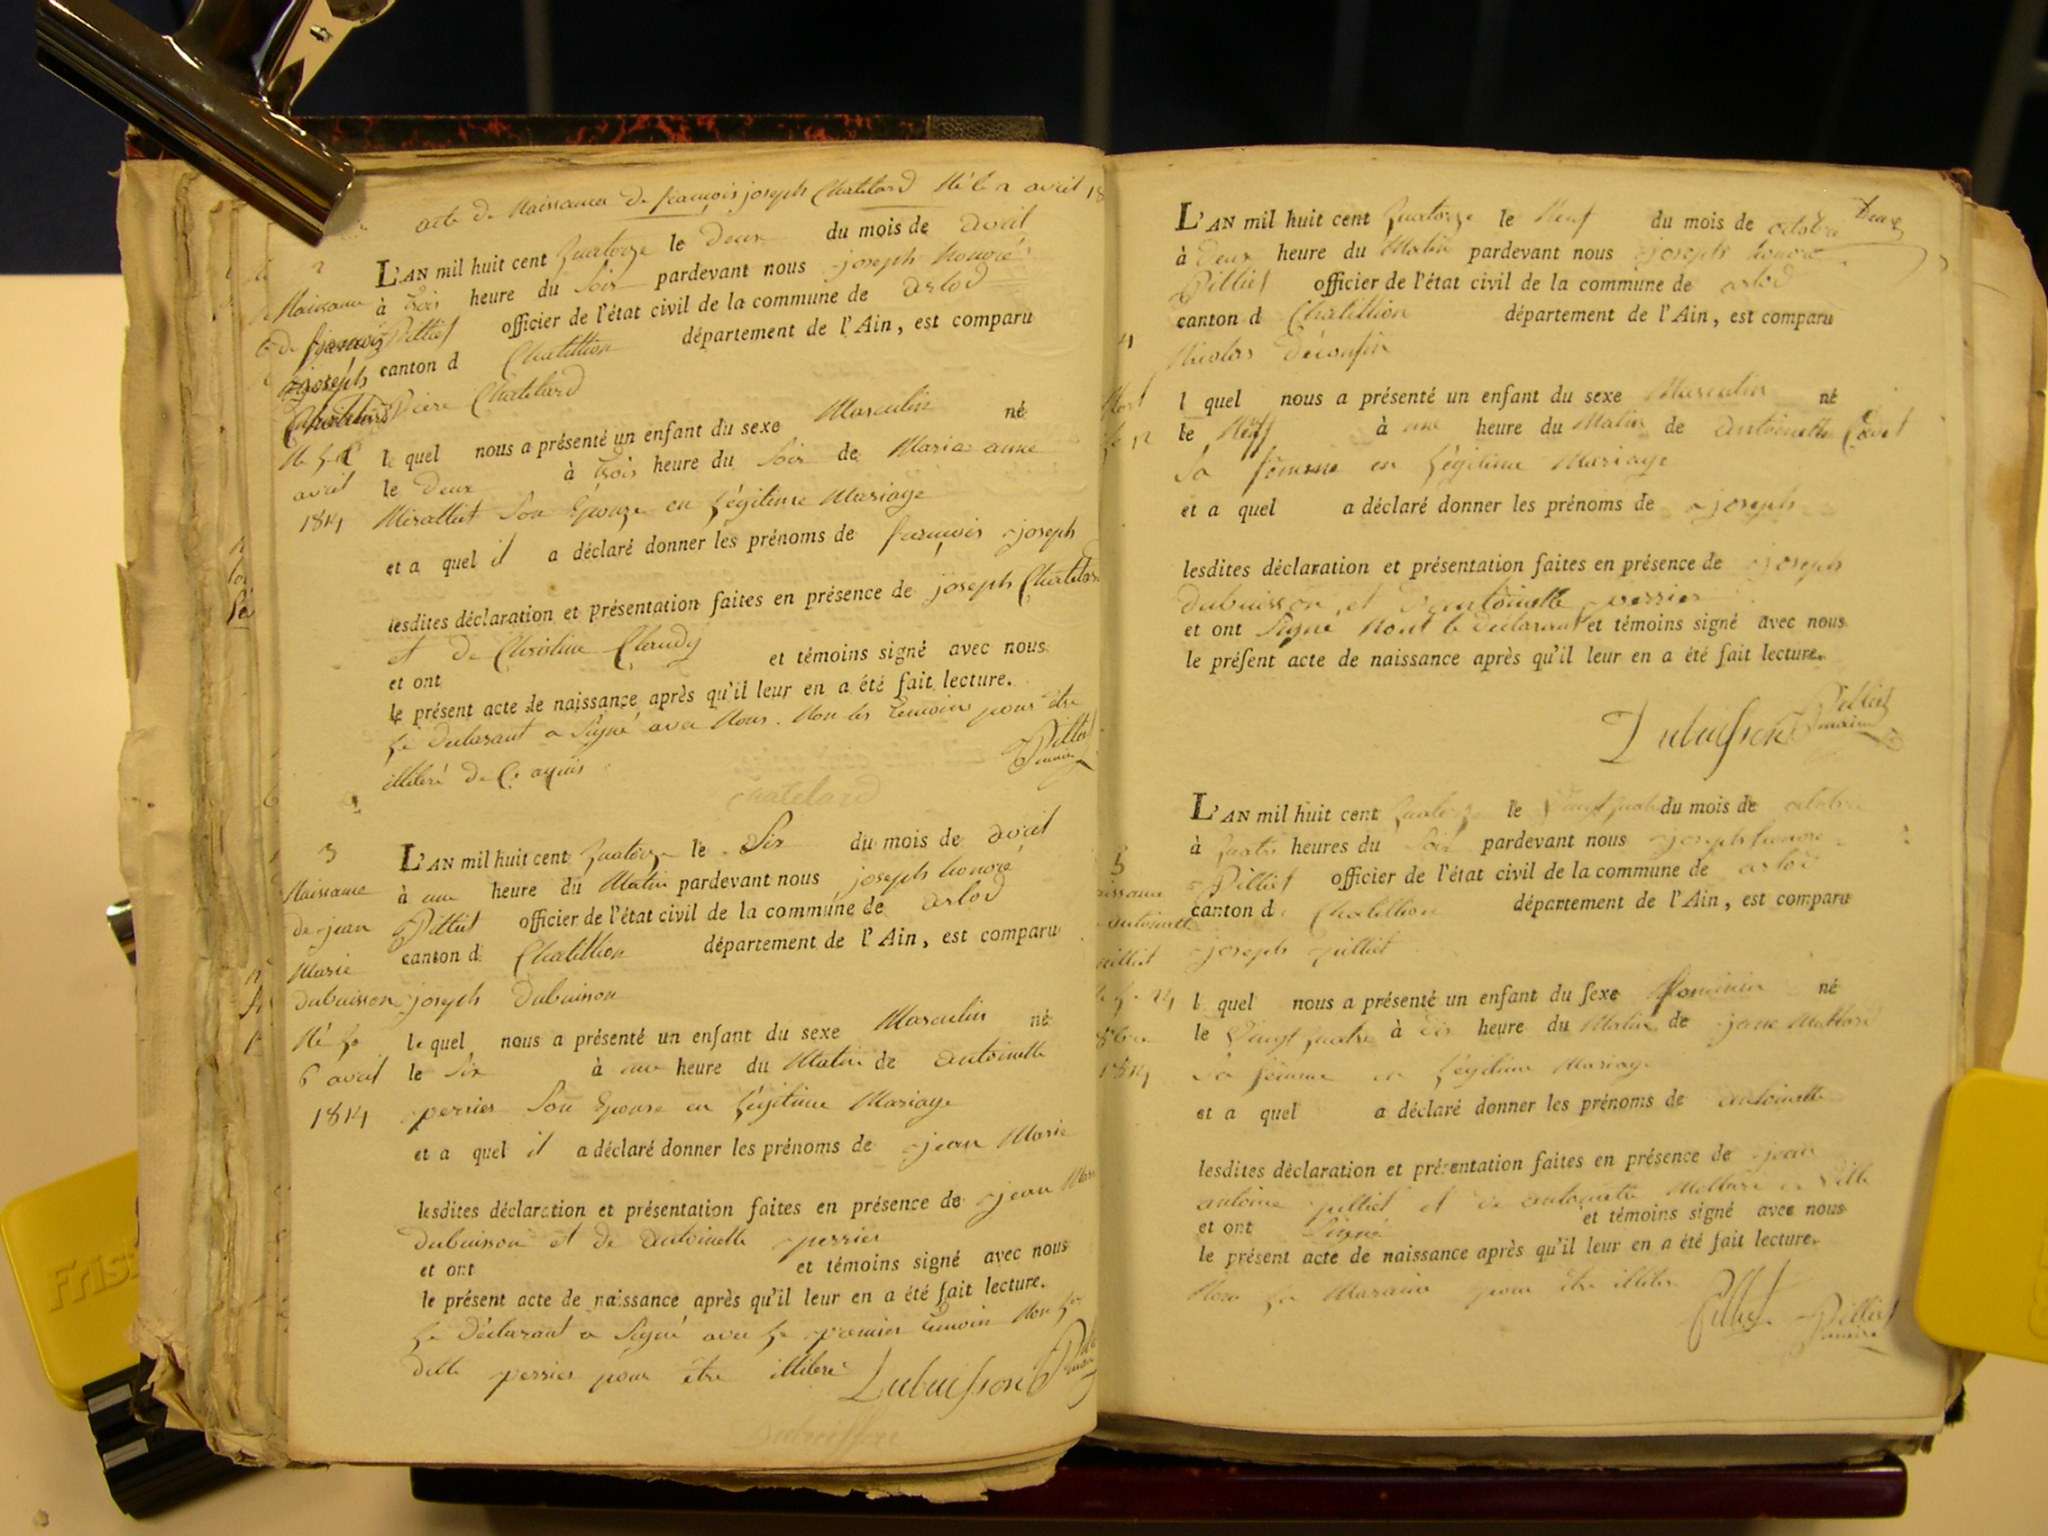 acte de Naissance de françois joseph Chatelard Né le 2 avril 18
2
Naissance
de françois
joseph
Chatelard
Né le 2
avril
1814
L'AN mil huit cent quatorze le Deux du mois de avril
à trois heure du Soir pardevant nous joseph honoré
Pilliet officier de l'état civil de la commune de arlod
canton d Chatillion département de l'Ain, est comparu
Pierre Chatelard
le quel nous a présenté un enfant du sexe Masculin né
le Deux à trois heure du Soir de Marie anne
Son Epouze en Légitime Mariage
et a quel il a déclaré donner les prénoms de françois joseph
lesdites déclaration et présentation faites en présence de joseph Chatelard
et de Claudy
et ont et témoins signé avec nous
le présent acte de naissance après qu'il leur en a été fait lecture.
Le déclarant a Signé avec Nous. Non les témoins pour être
illiteré de ce aquis
Pilliet
maire
Chatelard
3
Naissance
de jean
Marie
dubuisson
Né le
6 avril
1814
L'AN mil huit cent quatorze le Six du mois de avril
à une heure du Matin pardevant nous joseph honoré
Pilliet officier de l'état civil de la commune de arlod
canton d Chatillion département de l'Ain, est comparu
joseph Dubuisson
le quel nous a présenté un enfant du sexe Masculin né
le Six à une heure du Matin de antoinette
perrier Son Epouse en Légitime Mariage
et a quel il a déclaré donner les prénoms de jean Marie
lesdites déclaration et présentation faites en présence de jean Marie
Dubuisson et de antoinette perrier
et ont et témoins signé avec nous
le présent acte de naissance après qu'il leur en a été fait lecture.
Le déclarant a Signé avec le premier témoin Non la
dite perrier pour être illiteré
Dubuisson
Dubuisson
Deux
L'AN mil huit cent quatorze le Neuf du mois de octobre
à Deux heure du Matin pardevant nous joseph honoré
Pilliet officier de l'état civil de la commune de arlod
canton d Chatillion département de l'Ain, est comparu
Nicolas
l quel nous a présenté un enfant du sexe Masculin né
le Neuf à une heure du Matin de antoinette
Sa femme en Légitime Mariage
et a quel a déclaré donner les prénoms de joseph
lesdites déclaration et présentation faites en présence de joseph
dubuisson et d'antoinette perrier
et ont Signé Non le déclarant et témoins signé avec nous
le présent acte de naissance après qu'il leur en a été fait lecture.
Dubuisson Pilliet
maire
5
antoinette
pilliet
1814
L'AN mil huit cent quatorze le Vingt quatre du mois de octobre
à quatre heures du Soir pardevant nous joseph honoré
Pilliet officier de l'état civil de la commune de arlod
canton d Chatillion département de l'Ain, est comparu
joseph pilliet
l quel nous a présenté un enfant du sexe féminin né
le Vingt quatre à dix heure du Matin de
Sa femme en Légitime Mariage
et a quel a déclaré donner les prénoms de antoinette
lesdites déclaration et présentation faites en présence de jean
antoine pilliet et de antoinette
et ont Signé et témoins signé avec nous
le présent acte de naissance après qu'il leur en a été fait lecture.
Non la Maraine pour être illiteré
Pilliet Pilliet
maire